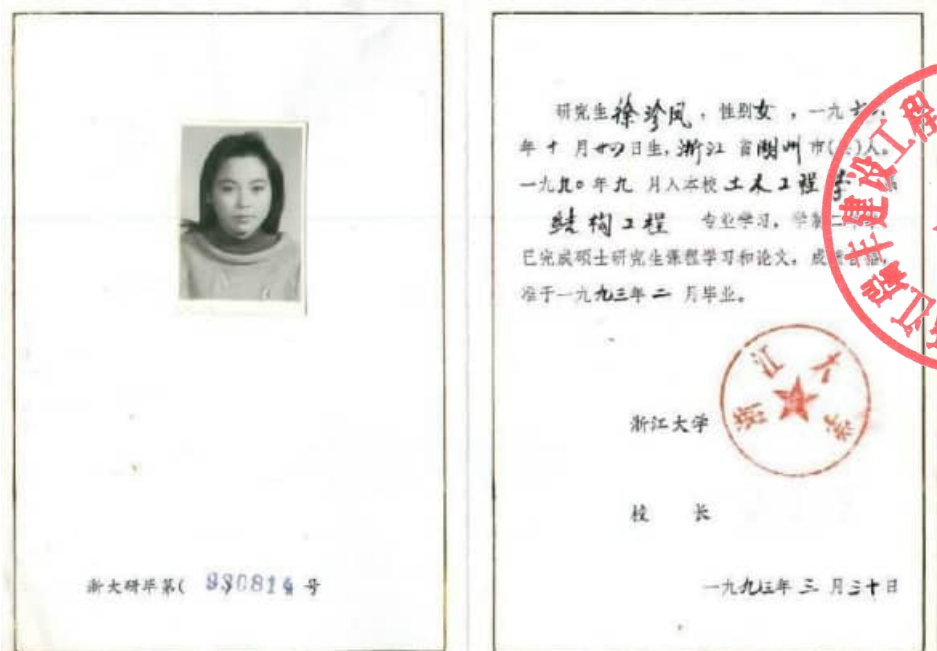 浙大研毕第( 930814 号
研究生徐珍凤，性别女，一九六
年十月廿四日生，浙江省湖州市(县)人。
一九九〇年九月入本校土木工程学系
结构工程 专业学习，学制二
已完成硕士研究生课程学习和论文，成绩合格，
准于一九九三年二月毕业。
浙江大学
浙江大学
校 长
一九九三年三月三十日
建设工程